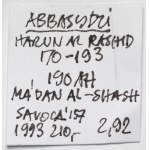 ABBASYDZI
HARUN AL RASHID
170-193
190 AH
MA'DAN AL-SHASH
SAVOCA '157
1993 210,- 2,92